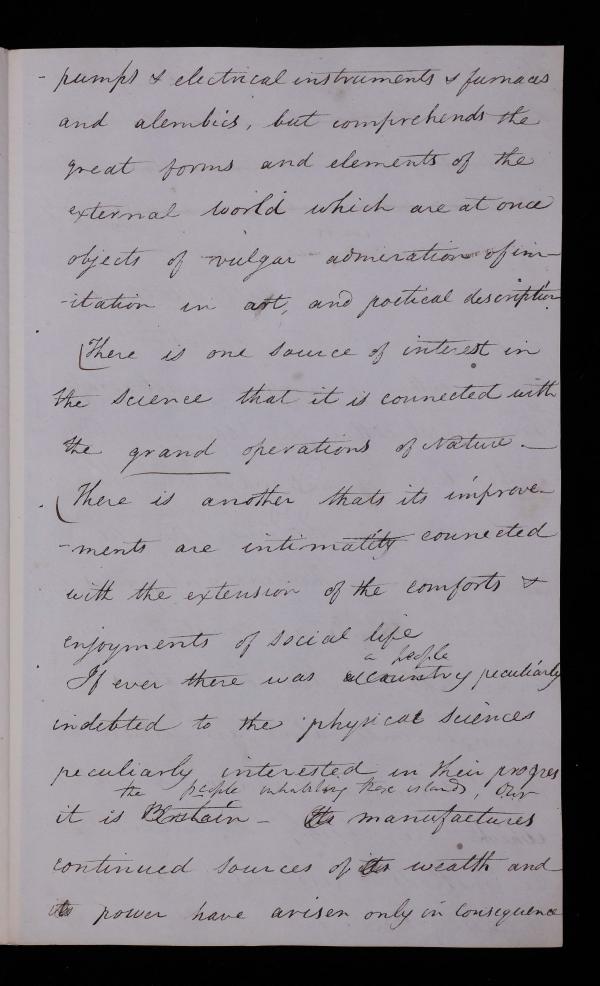 - pumps & electrical instruments & furnaces
and alembics, but comprehends the
great forms and elements of the
external world which are at once
objects of vulgar admiration of im-
-itation in art, and poetical description
There is one source of interest in
the science that it is connected with
the grand operations of Nature. —
There is another thats its improve-
-ments are intimatily connected
with the extension of the comforts &
enjoyments of social life
a people
If ever there was a country peculiarly
indebted to the physical sciences
peculiarly interested in their progres
the people inhabiting these islands, Our
it is Britain - Its manufactures
continued sources of its wealth and
its power have arisen only in consequence